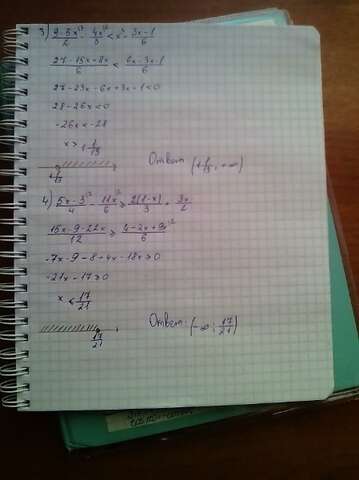 3) (9-5x)/2 - 4x/3 < x - (3x-1)/6
(27-15x+8x)/6 < (6x-3x-1)/6
27-23x-6x+3x-1<0
28-26x<0
-26x<-28
x > 1 1/13
1 1/13
Ответ (1 1/13, +∞)
4) (5x-3)/4 - 11x/6 ≥ 2(2-x)/3 + 3x/2
(15x-9-22x)/12 ≥ (4-2x+9x)/6
-7x-9-8+4x-18x≥0
-21x-17≥0
x ≤ 17/21
17/21
Ответ: (-∞; 17/21)